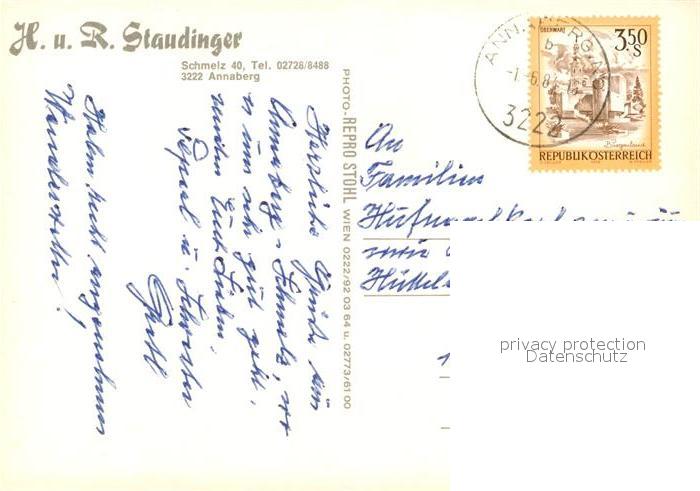 H. u. R. Staudinger
Schmelz 40, Tel. 02728/8488
3222 Annaberg
PHOTO-REPRO STOHL WIEN 0222/92 03 64 u. 02773/61 00
Herzliche Grüße von
Annaberg - Schmelz, wo
es uns sehr gut geht.
Eure Lieben
u.
Gretl
Haben recht angenehmes
Wanderwetter!
An
Familien
ANNABERG
3222
OBERWART
3.50
S
Burgenland
REPUBLIK ÖSTERREICH
privacy protection
Datenschutz